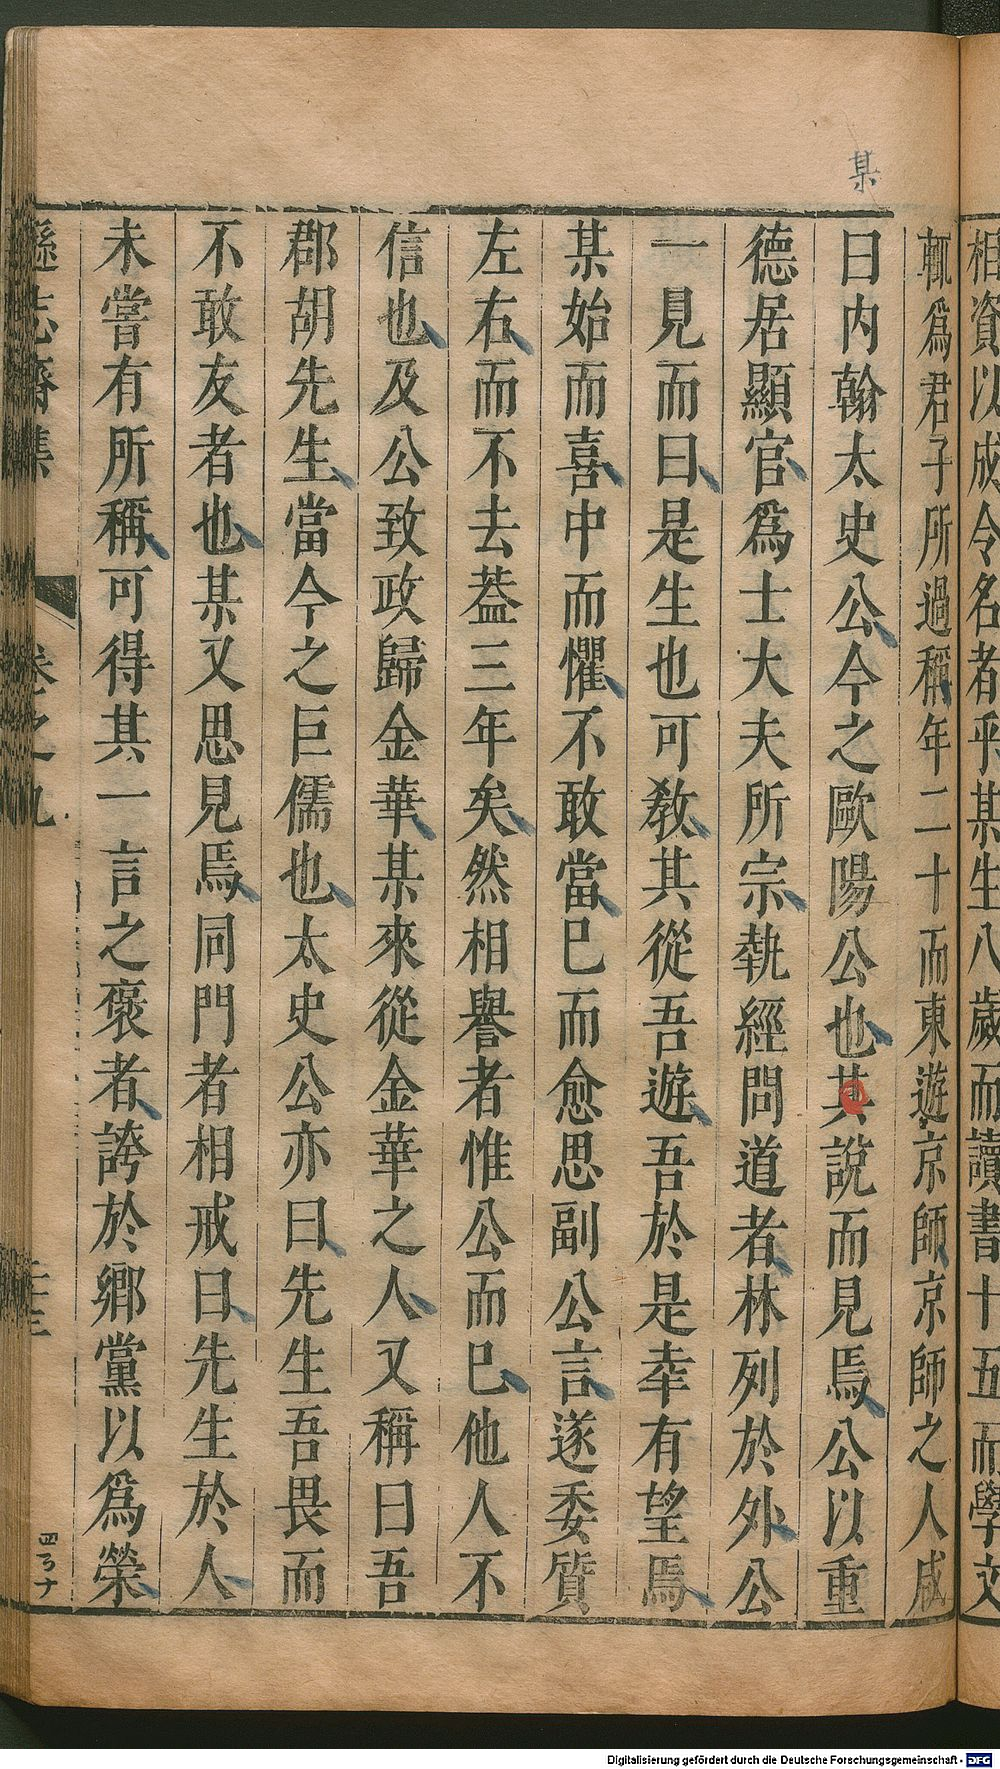 相資以成令名者乎某生八歲而讀書十五而學文
輒爲君子所過稱年二十而東遊京師京師之人咸
某
曰內翰太史公今之歐陽公也其說而見焉公以重
德居顯官爲士大夫所宗執經問道者林列於外公
一見而曰是生也可教其從吾遊吾於是幸有望焉
某始而喜中而懼不敢當已而愈思副公言遂委質
左右而不去葢三年矣然相譽者惟公而已他人不
信也及公致政歸金華某來從金華之人又稱曰吾
郡胡先生當今之巨儒也太史公亦曰先生吾畏而
不敢友者也某又思見焉同門者相戒曰先生於人
未嘗有所稱可得其一言之褒者誇於鄉黨以爲榮
遜志齋集 卷之九 二十三
Digitalisierung gefördert durch die Deutsche Forschungsgemeinschaft - DFG